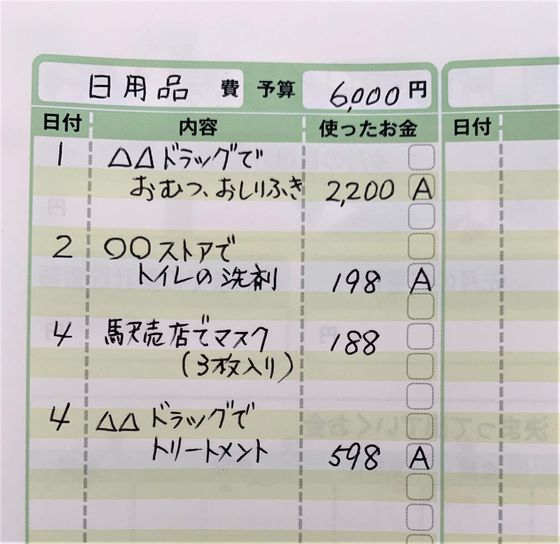 日用品 費 予算 6,000円
日付 内容 使ったお金 日付
1 △△ドラッグで
おむつ、おしりふき 2,200 A
2 〇〇ストアで
トイレの洗剤 198 A
4 駅売店でマスク 188
(3枚入り)
4 △△ドラッグで
トリートメント 598 A